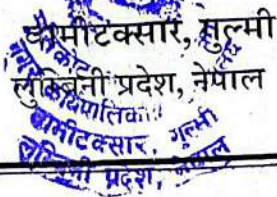 धामीटक्सार, गुल्मी
लुम्बिनी प्रदेश, नेपाल
कार्यपालिका
धामीटक्सार, गुल्मी
लुम्बिनी प्रदेश, नेपाल